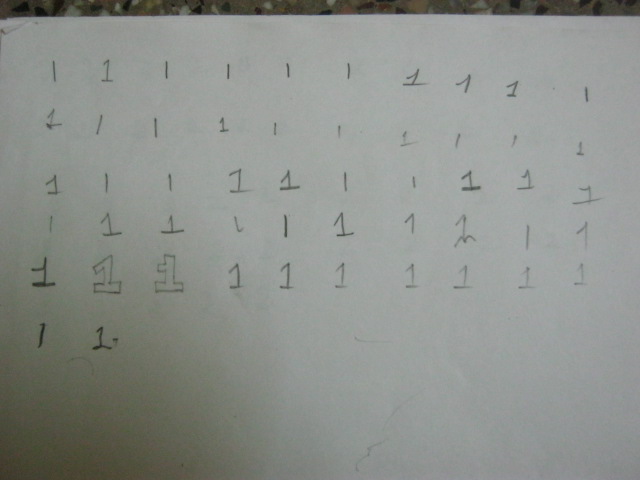 1 1 1 1 1 1 1 1 1 1
1 1 1 1 1 1 1 1 1 1
1 1 1 1 1 1 1 1 1 1
1 1 1 1 1 1 1 1 1 1
1 1 1 1 1 1 1 1 1 1
1 1